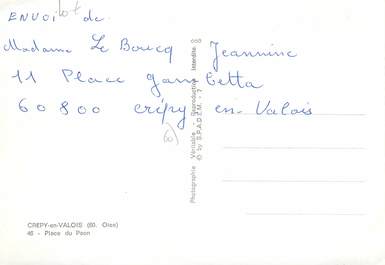 ENVOI de
Madame Le Boucq Jeannine
11 Place gambetta
60800 crépy en-Valois
60
Photographie Véritable - Reproduction Interdite
© by S.P.A.D.E.M. - 7
CREPY-en-VALOIS (60. Oise)
46 - Place du Paon